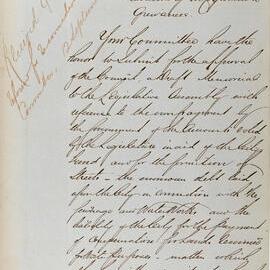 Grievances.
Your Committee have the
honor to Submit for the approval
of the Council, a draft Memorial
to the Legislative Assembly with
reference to the non payment by
the Government of the Amount voted
by the Legislature in aid of the City
fund and for the formation of
Streets - the enormous debt cast
upon the City in connection with the
Sewerage and Water Works and the
liability of the City for the payment
of Compensation for Lands resumed
for Public Purposes - matters